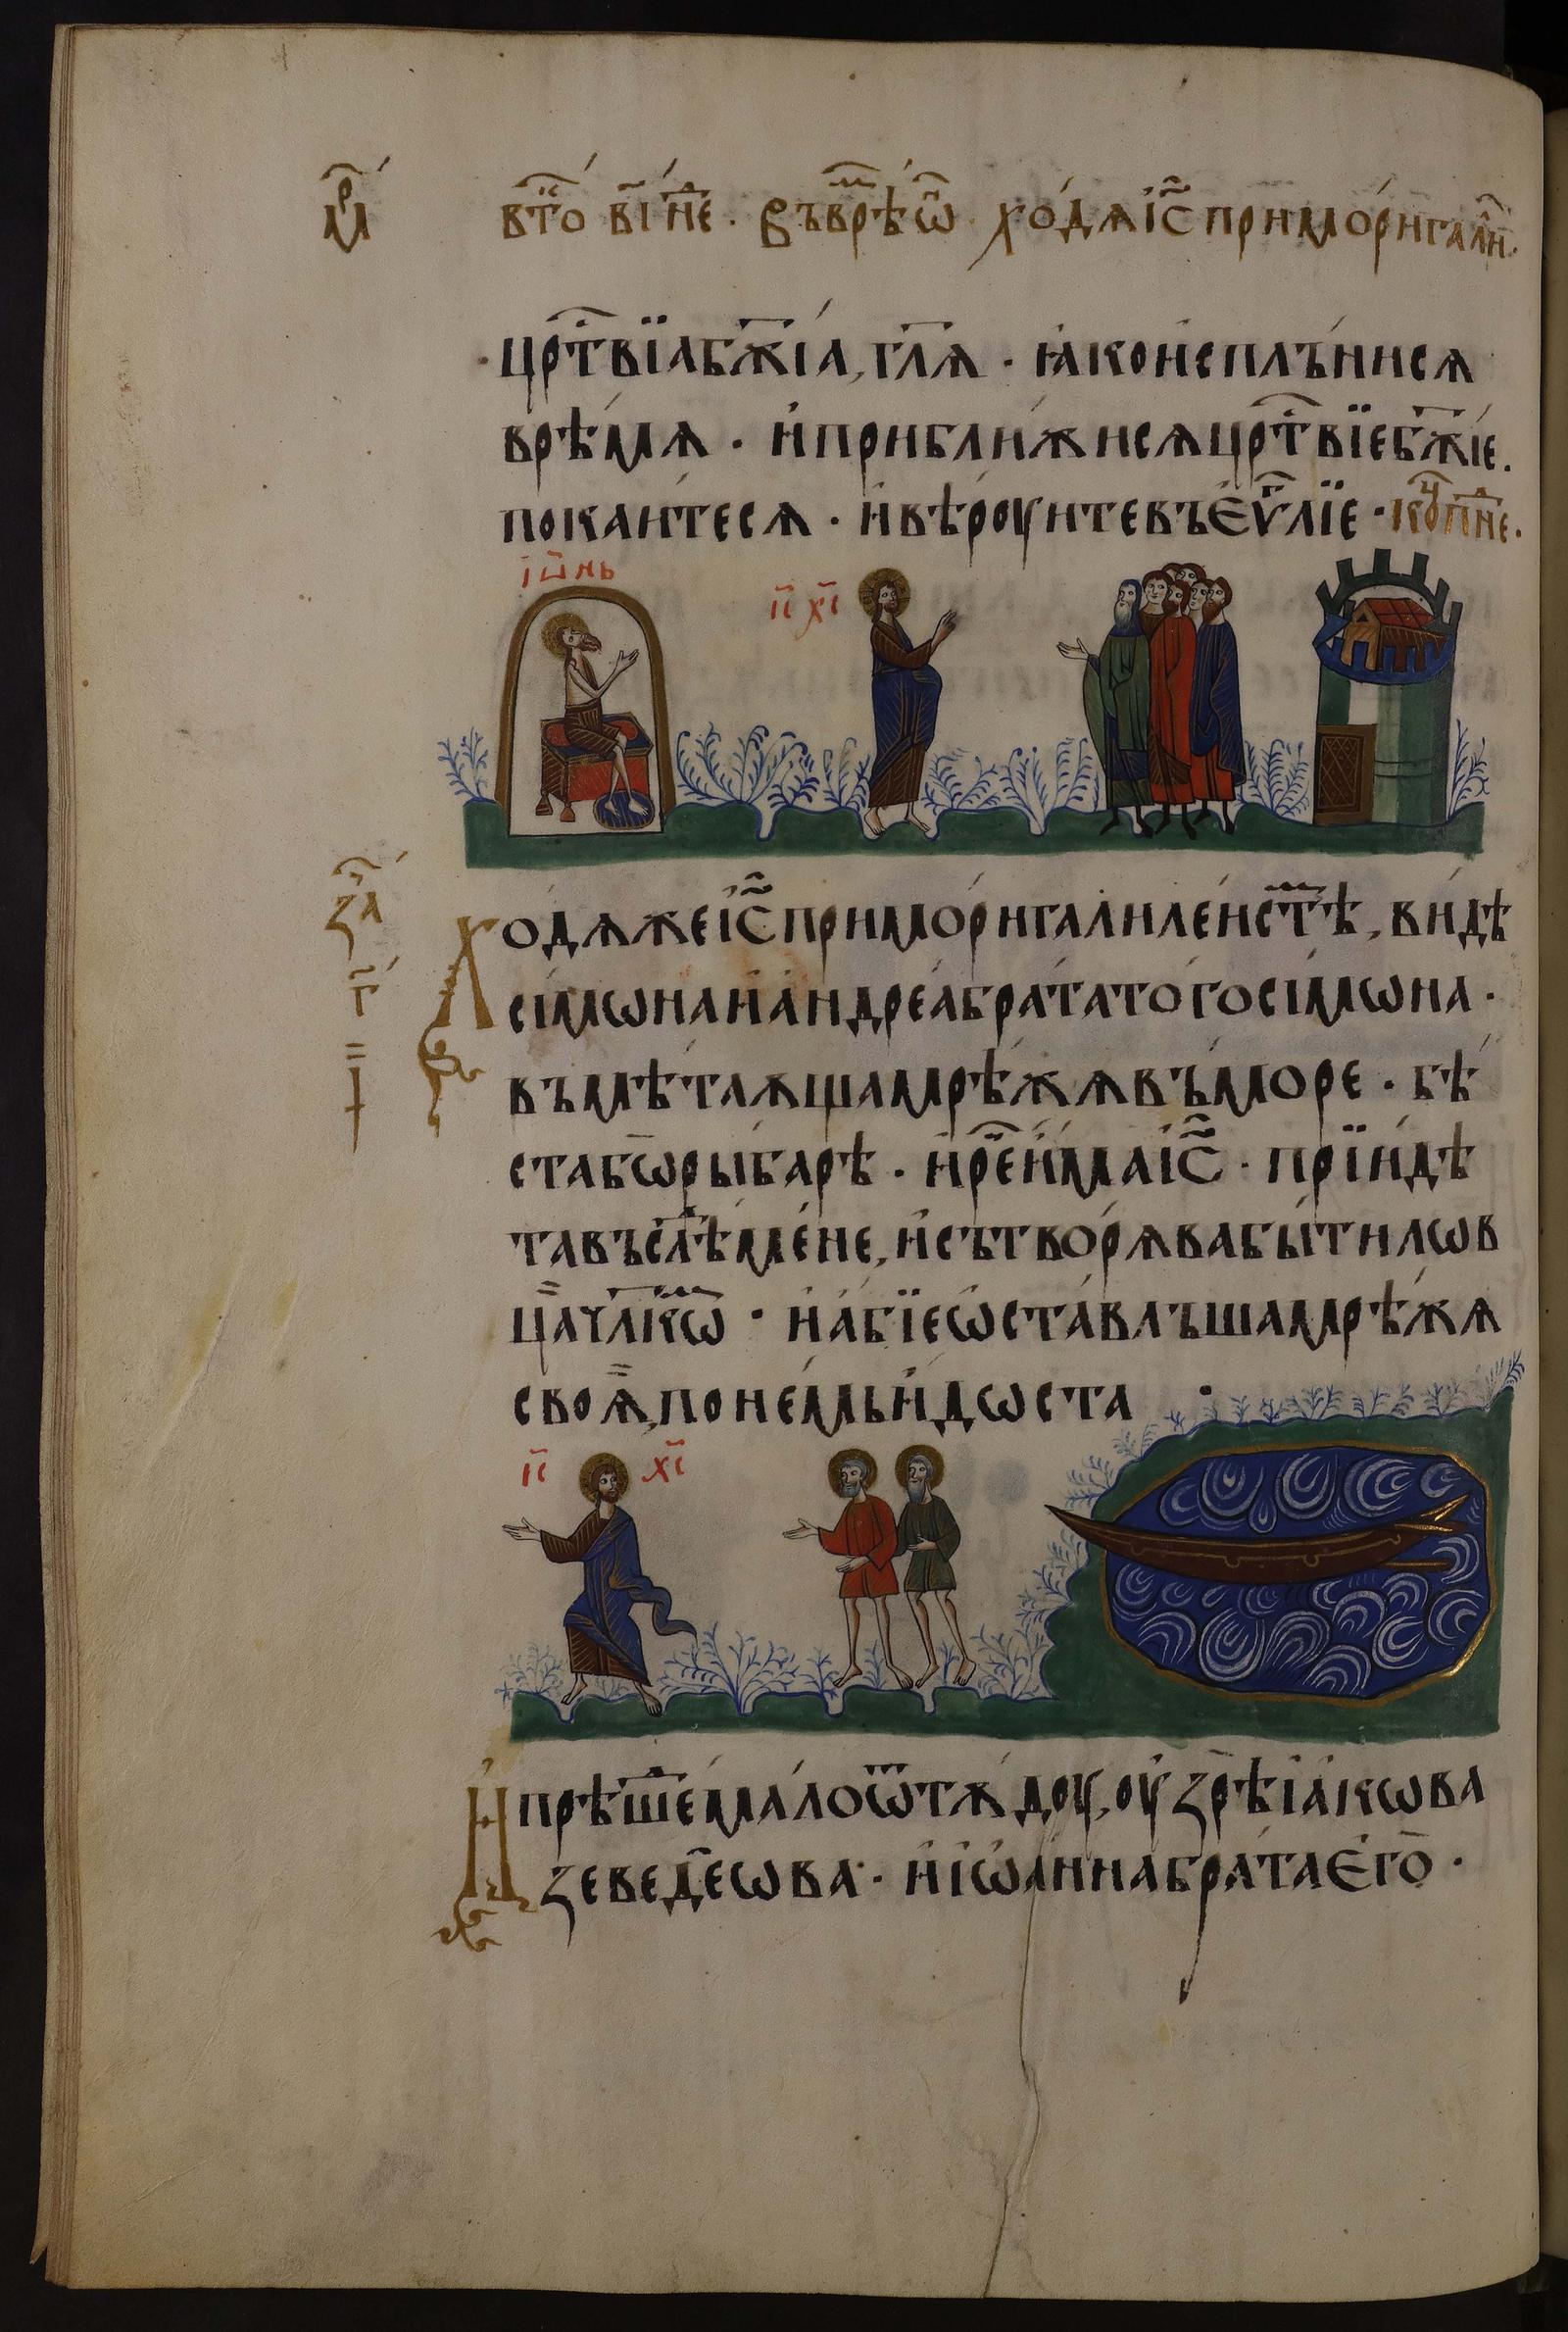 мр҃
вто҇ в҃і не҇д. въ вр҇ѣмѡ҇. хо́дѧ і҆с҃ при мо́ри гали҇л.
цр҇твїа бж҃їа, гл҃ѧ · ꙗ҆ко и҆сплъ́нисѧ
врѣ́мѧ · и҆ прибли́жисѧ цр҇твїе бж҃іе.
пока́итесѧ · и҆ вѣ́роуите въ єѵ҇лїе · ко҇ц по не҇д.
іѡ҃нь
і҃с х҃с
за҇ч
г҃
Хо́дѧ же і҆с҃ при мо́ри галиле́истѣ҇мь, ви́дѣ
сі́мѡна и҆ а҆ндре́а бра́та того́ сі́мѡна ·
въмѣ́таѫща мрѣ́жѫ въ мо́ре · бѣ́
ста бѡ рыбарѣ · и҆ ре҇ и҆́ма і҆с҃ · прїи́дѣ
та въ слѣ҇д ме́не, и҆ сътворѫ́ ва бы́ти лѡв
ца чл҃кѡ҇м · и҆ а҆́бїе ѡ҆ста́вльша мрѣ́жѫ
своѫ, по не́мь и҆дѡста ·
і҃с х҃с
И҆ прѣше҇д ма́ло ѿтѫ́доу, оу҆зрѣ і҆а́кѡва
зеведе҇ѡва · и҆ і҆ѡ҆а́нна бра́та єго̀ ·